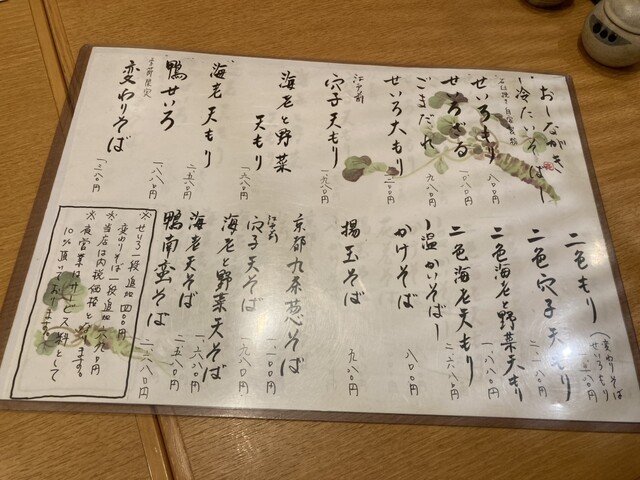 おしながき
〜冷たいそば〜
せいろもり
八八〇円
せいろざる
一〇八〇円
ごまだれ
九八〇円
せいろ大もり
江戸前
穴子天もり
一九八〇円
海老と野菜
天もり
一六八〇円
海老天もり
二五八〇円
鴨せいろ
一八八〇円
季節限定
変わりそば
一二八〇円
二色もり
(変わりそば
せいろもり
二色穴子天もり
二色海老と野菜天もり
二色海老天もり
〜温かいそば〜
かけそば
八八〇円
揚玉そば
九八〇円
京都九条葱そば
江戸前
穴子天そば
一九八〇円
海老と野菜天そば
一六八〇円
海老天そば
二五八〇円
鴨南蛮そば
一八八〇円
※せいろ一段追加 四〇〇円
変わりそば一段追加 六八〇円
※当店は内税価格となります。
※夜営業はサービス料として
10%頂いております。